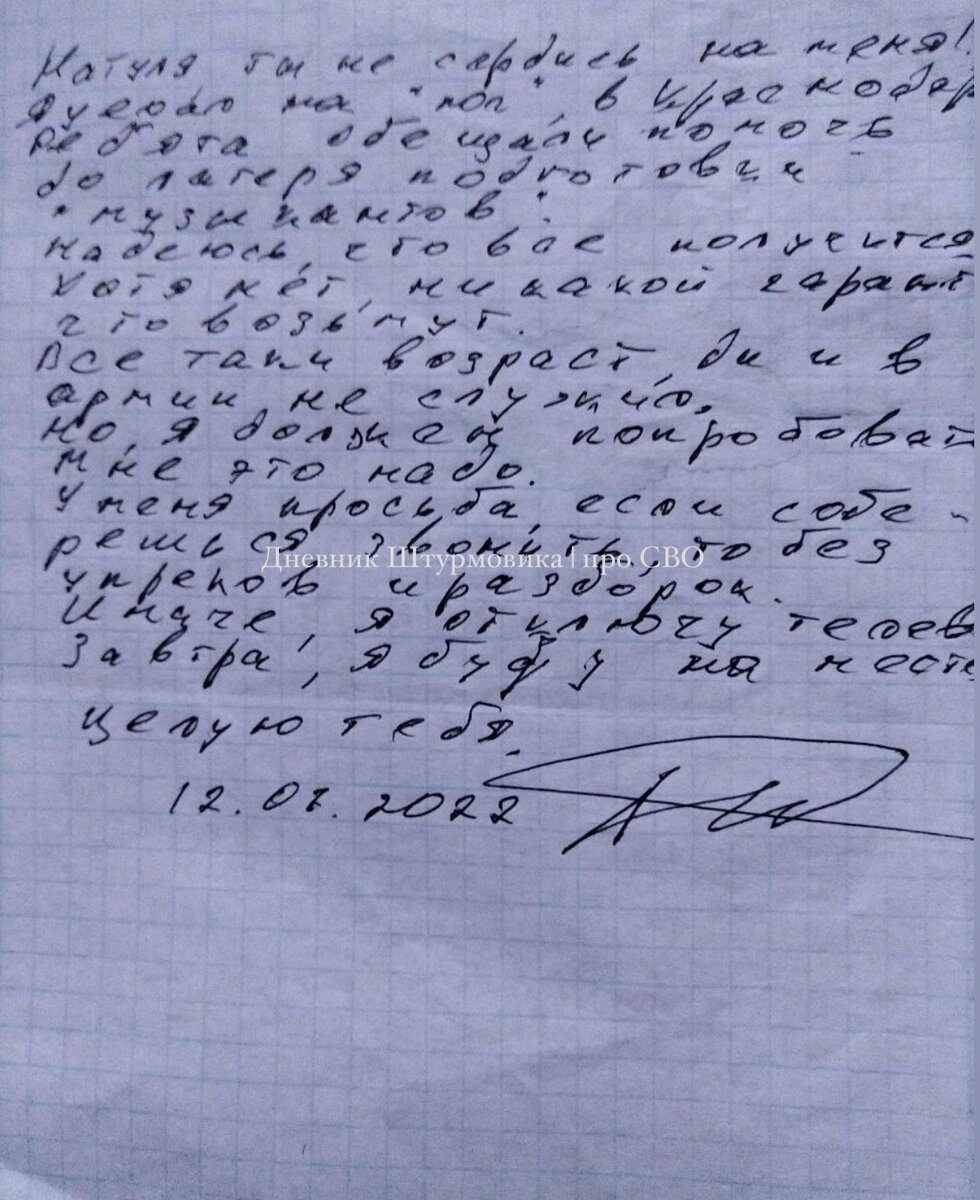 Натуля ты не сердись на меня!
Я уехал на "поп", в Краснодар
Ребята обещали помочь
до лагеря подготовки
"музыкантов".
Надеюсь, что все получится
Хотя нет, никакой гарант
что возьмут.
Все таки возраст, да и в
армии не служил.
Но, я должен попробоват
Мне это надо.
У меня просьба, если собе-
решься звонить, то без
упреков и разборок.
Иначе, я отключу телеф
Завтра, я буду на месте
Целую тебя.
12.07.2022
Дневник Штурмовика | про СВО